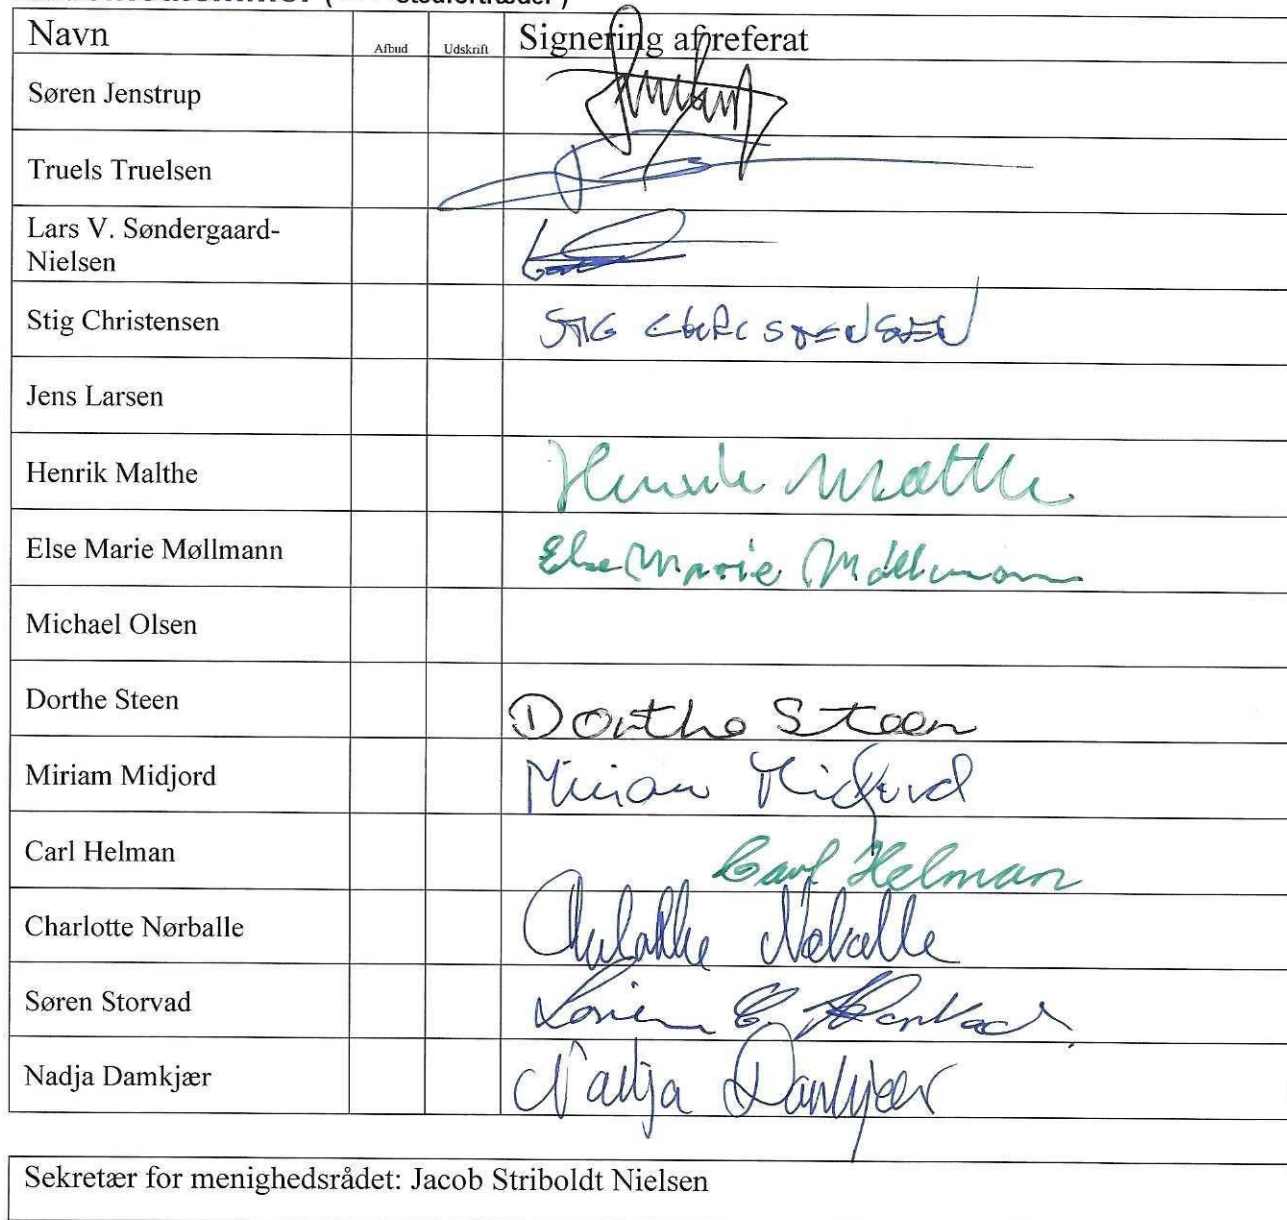 Navn Afbud Udskrift Signering af referat
Søren Jenstrup
Truels Truelsen
Lars V. Søndergaard-
Nielsen
Stig Christensen STIG CHRISTENSEN
Jens Larsen
Henrik Malthe Henrik Malthe
Else Marie Møllmann Else Marie Møllmann
Michael Olsen
Dorthe Steen Dorthe Steen
Miriam Midjord Miriam Midjord
Carl Helman Carl Helman
Charlotte Nørballe Charlotte Nørballe
Søren Storvad Søren E. Storvad
Nadja Damkjær Nadja Damkjær
Sekretær for menighedsrådet: Jacob Striboldt Nielsen